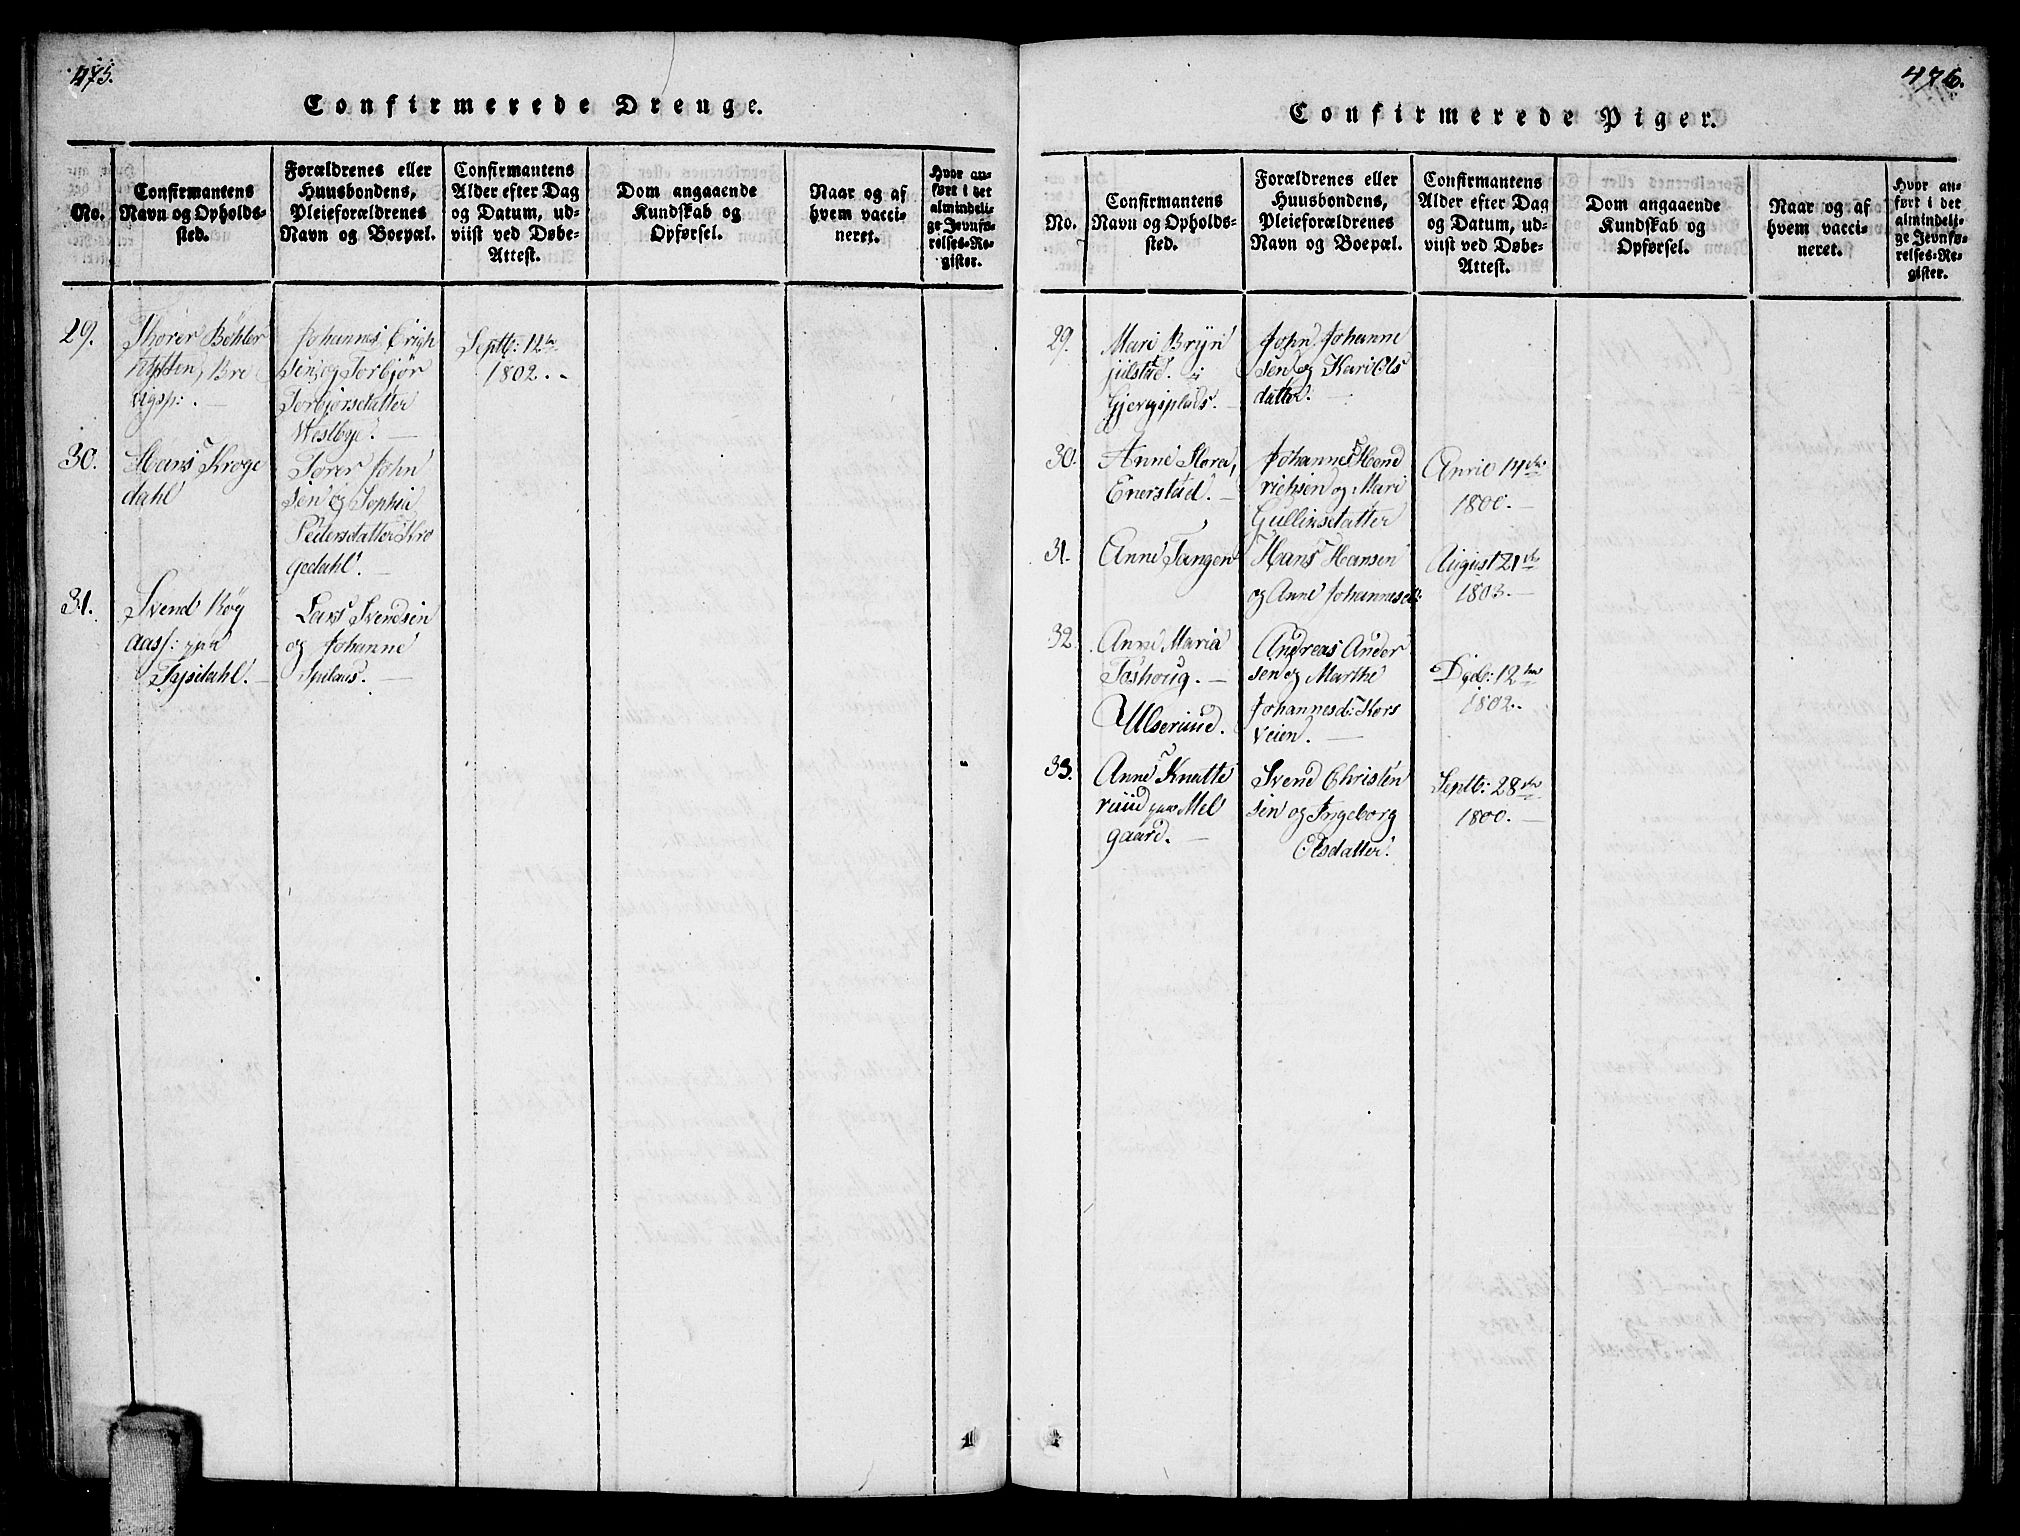 475.
Confirmerede Drenge.
No.
Confirmantens
Navn og Opholds-
sted.
Forældrenes eller
Huusbondens,
Pleieforældrenes
Navn og Boepæl.
Confirmantens
Alder efter Dag
og Datum, ud-
viist ved Døbe-
Attest.
Dom angaaende
Kundskab og
Opførsel.
Naar og af
hvem vacci-
neret.
Hvor an-
ført i det
almindeli-
ge Jevnfø-
relses-Re-
gister.
29.
Thorer Böhler
hytten, Bre
vigsp: .
Johannes Erich
sen, og Torbjør
Torbjørsdatter
Westbye.
Septb: 12te
1802.
30.
Hans Kroge
dahl
Torer John
sen og Sophie
Pedersdatter Kro
gedahl.
31.
Svend Røy
aasf: paa
Tysedahl.
Lars Svendsen
og Johanne
476.
Confirmerede Piger.
No.
Confirmantens
Navn og Opholds-
sted.
Forældrenes eller
Huusbondens,
Pleieforældrenes
Navn og Boepæl.
Confirmantens
Alder efter Dag
og Datum, ud-
viist ved Døbe-
Attest.
Dom angaaende
Kundskab og
Opførsel.
Naar og af
hvem vacci-
neret.
Hvor an-
ført i det
almindeli-
ge Jevnfø-
relses-Re-
gister.
29.
Mari Bryn
julstad.
John Johanne
sen og Kari Ols
datter.
30.
Anne Flora,
Enerstad.
Johannes Hend
richsen og Mari
Gullinsdatter
14de
1800.
31.
Anne Tangen
Hans Hansen
og Anne Johannesd:
August 21de
1803.
32.
Anne Maria
Toshoug.
Ulserud.
Andreas Ander
sen og Marthe
Johannesd: Kors
veien.
12te
1802.
33.
Anne Knatte
ruud paa Mel
gaard.
Svend Christen
sen og Ingeborg
Olsdatter.
Septb: 28de
1800.